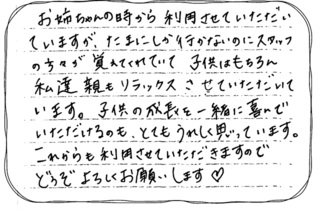 お姉ちゃんの時から利用させていただい
ていますが、たまにしか行かないのにスタッフ
の方々が覚えてくれていて 子供はもちろん
私達親もリラックスさせていただいて
います。子供の成長を一緒に喜んで
いただけるのも、とてもうれしく思っています。
これからも利用させていただきますので
どうぞよろしくお願いします♡